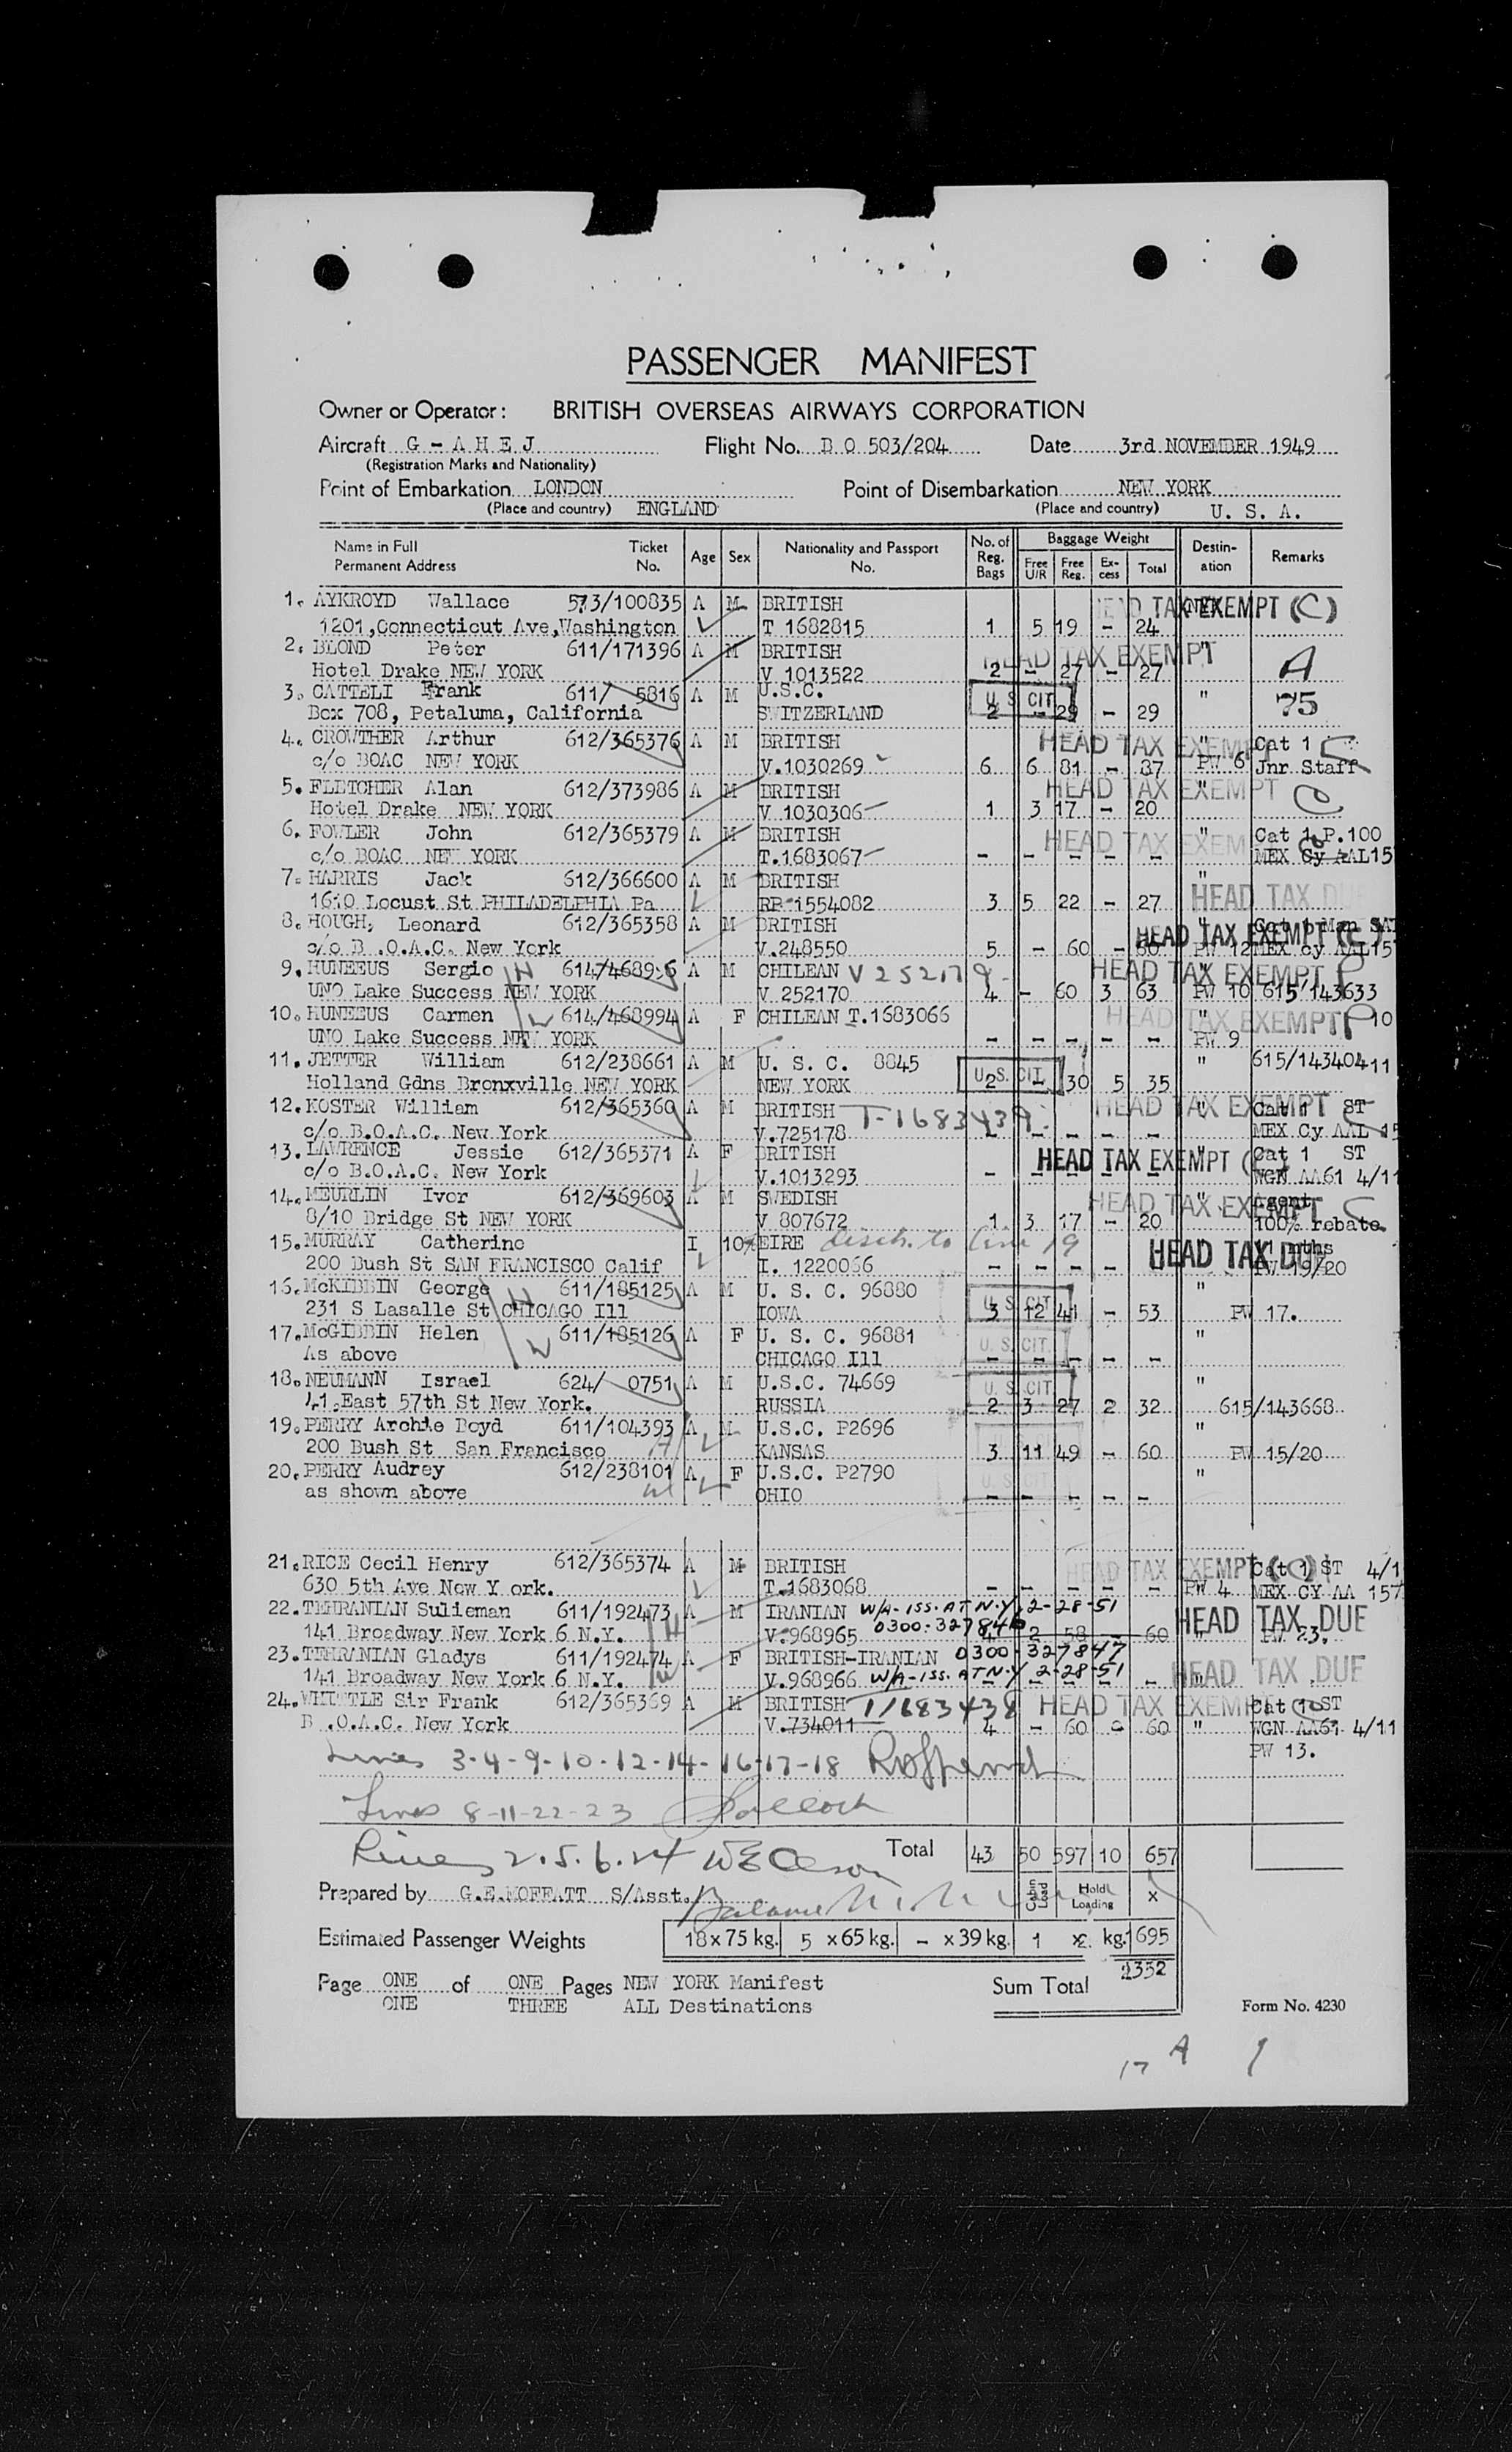 PASSENGER MANIFEST
Owner or Operator: BRITISH OVERSEAS AIRWAYS CORPORATION
Aircraft G - A H E J Flight No. B O 503/204 Date 3rd NOVEMBER 1949
(Registration Marks and Nationality)
Point of Embarkation LONDON Point of Disembarkation NEW YORK
(Place and country) ENGLAND (Place and country) U. S. A.
Name in Full Permanent Address Ticket No. Age Sex Nationality and Passport No. No. of Reg. Bags Baggage Weight Free U/R Free Reg. Ex-cess Total Destin-ation Remarks
1. AYKROYD Wallace 573/100835 A M BRITISH HEAD TAX EXEMPT (C)
1201,Connecticut Ave,Washington T 1682815 1 5 19 - 24
2. BLOND Peter 611/171396 A M BRITISH HEAD TAX EXEMPT "
Hotel Drake NEW YORK V 1013522 2 - 27 - 27 A
3. CATTELI Frank 611/ 5816 A M U.S.C. U. S. CIT. " 75
Box 708, Petaluma, California SWITZERLAND 2 - 29 - 29
4. CROWTHER Arthur 612/365376 A M BRITISH HEAD TAX EXEMPT " Cat 1 C
c/o BOAC NEW YORK V.1030269 6 6 81 - 87 PW 6 Jnr Staff
5. FLETCHER Alan 612/373986 A M BRITISH HEAD TAX EXEMPT " C
Hotel Drake NEW YORK V 1030306 1 3 17 - 20
6. FOWLER John 612/365379 A M BRITISH HEAD TAX EXEM " Cat 1 P.100
c/o BOAC NEW YORK T.1683067 - - - - - MEX Cy AAL15
7. HARRIS Jack 612/366600 A M BRITISH " HEAD TAX DUE
1610 Locust St PHILADELPHIA Pa RP 1554082 3 5 22 - 27
8. HOUGH, Leonard 612/365358 A M BRITISH HEAD TAX EXEMPT (C) " Cat 1
c/o B .O.A.C. New York V.248550 5 - 60 - 60 PW 12 MEX cy AAL15
9. HUNEEUS Sergio H A M CHILEAN HEAD TAX EXEMPT P
UNO Lake Success NEW YORK V 252170 4 - 60 3 63 PW 10 615/143633
10. HUNEEUS Carmen W 614/468994 A F CHILEAN T.1683066 HEAD TAX EXEMPT P 10
UNO Lake Success NEW YORK - - - - - PW 9
11. JETTER William 612/238661 A M U. S. C. 8845 U. S. CIT. " 615/143404 11
Holland Gdns Bronxville NEW YORK NEW YORK 2 - 30 5 35
12. KOSTER William 612/365360 A M BRITISH T-1683439 HEAD TAX EXEMPT " Cat 1 ST
c/o B.O.A.C. New York V.725178 - - - - - MEX Cy AAL 15
13. LAWRENCE Jessie 612/365371 A F BRITISH HEAD TAX EXEMPT " Cat 1 ST
c/o B.O.A.C. New York V.1013293 - - - - - WGN AA61 4/11
14. MEURLIN Ivor 612/369603 A M SWEDISH HEAD TAX EXEMPT " Agent C
8/10 Bridge St NEW YORK V 807672 1 3 17 - 20 100% rebate
15. MURRAY Catherine I EIRE HEAD TAX DUE " mths
200 Bush St SAN FRANCISCO Calif I. 1220066 - - - - PW 19/20
16. McKIBBIN George H 611/185125 A M U. S. C. 96880 U. S. CIT. "
231 S Lasalle St CHICAGO Ill IOWA 3 12 41 - 53 PW 17.
17. McGIBBIN Helen W 611/185126 A F U. S. C. 96881 U. S. CIT. "
As above CHICAGO Ill - - - - -
18. NEUMANN Israel 624/ 0751 A M U.S.C. 74669 U. S. CIT. "
41.East 57th St New York. RUSSIA 2 3 27 2 32 615/143668
19. PERRY Archie Boyd 611/104393 A M U.S.C. P2696 "
200 Bush St San Francisco H KANSAS 3 11 49 - 60 PW 15/20
20. PERRY Audrey 612/238101 A F U.S.C. P2790 U. S. CIT. "
as shown above W OHIO - - - - -
21. RICE Cecil Henry 612/365374 A M BRITISH HEAD TAX EXEMPT (C) Cat 1 ST 4/1
630 5th Ave New Y ork. T.1683068 - - - - - PW 4 MEX CY AA 157
22. TEHRANIAN Sulieman 611/192473 A M IRANIAN W/A-ISS. AT N.Y. 2-28-51 HEAD TAX DUE
141 Broadway New York 6 N.Y. H V.968965 0300-327846 2 58 - 60 " PW 23.
23. TEHRANIAN Gladys 611/192474 A F BRITISH-IRANIAN 0300-327847
141 Broadway New York 6 N.Y. W V.968966 W/A-ISS. AT N.Y 2-28-51 HEAD TAX DUE
24. WHITTLE Sir Frank 612/365369 A M BRITISH T1683438 HEAD TAX EXEMPT Cat 1 ST
B .O.A.C. New York V.734011 4 - 60 - 60 " WGN AA61 4/11
PW 13.
Lines 3-4-9-10-12-14-16-17-18
Lines 8-11-22-23
Lines 2.5.6.24
Total 43 50 597 10 657
Prepared by G.E.MOFFATT S/Asst. Cabin Load Hold Loading x
Estimated Passenger Weights 18 x 75 kg. 5 x 65 kg. - x 39 kg. 1 x kg. 1695
2352
Page ONE of ONE Pages NEW YORK Manifest Sum Total
ONE THREE ALL Destinations
Form No. 4230
17 A 1